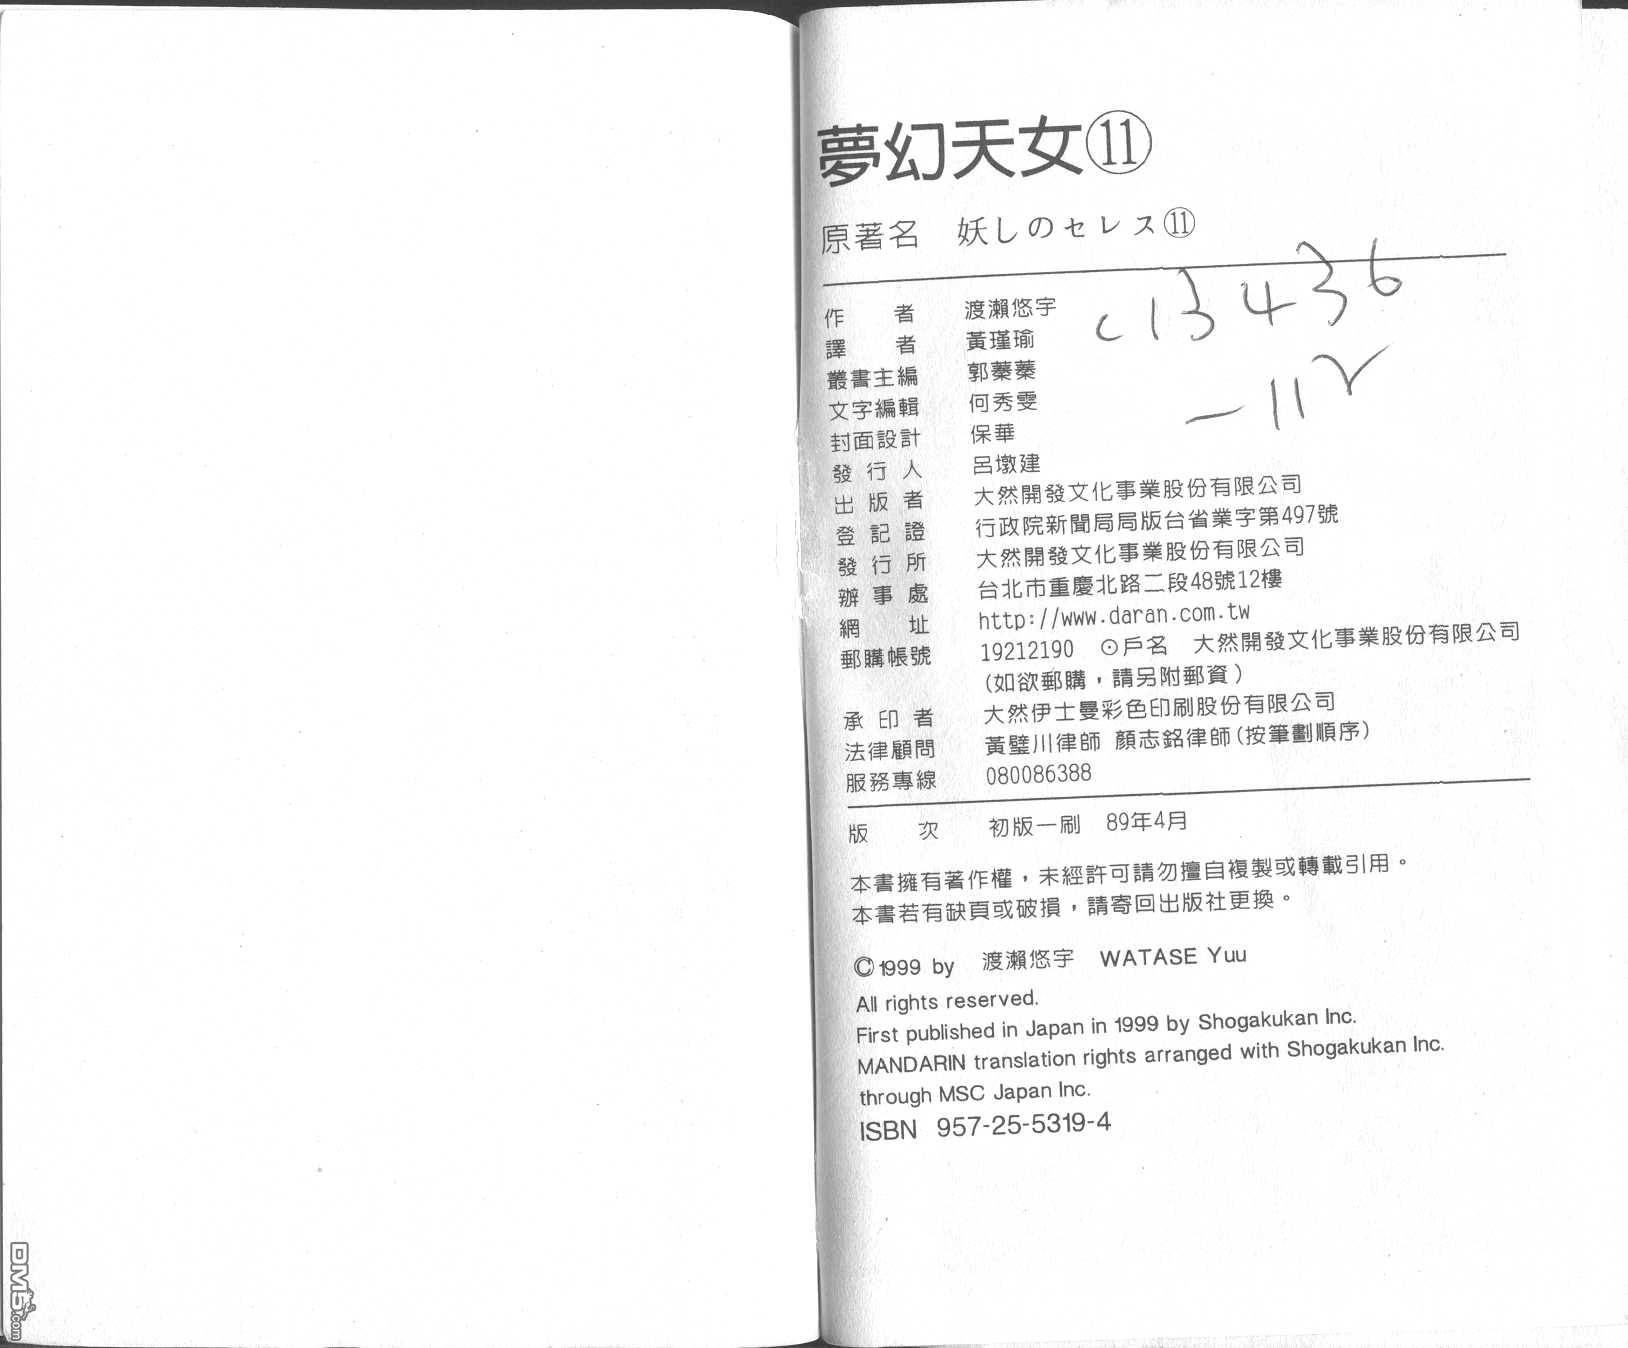 夢幻天女⑪
原著名 妖しのセレス⑪
作者 渡瀨悠宇
譯者 黃瑾瑜
叢書主編 郭蓁蓁
文字編輯 何秀雯
封面設計 保華
發行人 呂墩建
出版者 大然開發文化事業股份有限公司
登記證 行政院新聞局局版台省業字第497號
發行所 大然開發文化事業股份有限公司
辦事處 台北市重慶北路二段48號12樓
網址 http://www.daran.com.tw
郵購帳號 19212190 ⊙戶名 大然開發文化事業股份有限公司
(如欲郵購，請另附郵資)
承印者 大然伊士曼彩色印刷股份有限公司
法律顧問 黃璧川律師 顏志銘律師(按筆劃順序)
服務專線 080086388
版次 初版一刷 89年4月
本書擁有著作權，未經許可請勿擅自複製或轉載引用。
本書若有缺頁或破損，請寄回出版社更換。
©1999 by 渡瀨悠宇 WATASE Yuu
All rights reserved.
First published in Japan in 1999 by Shogakukan Inc.
MANDARIN translation rights arranged with Shogakukan Inc.
through MSC Japan Inc.
ISBN 957-25-5319-4
c13436
DM5.com